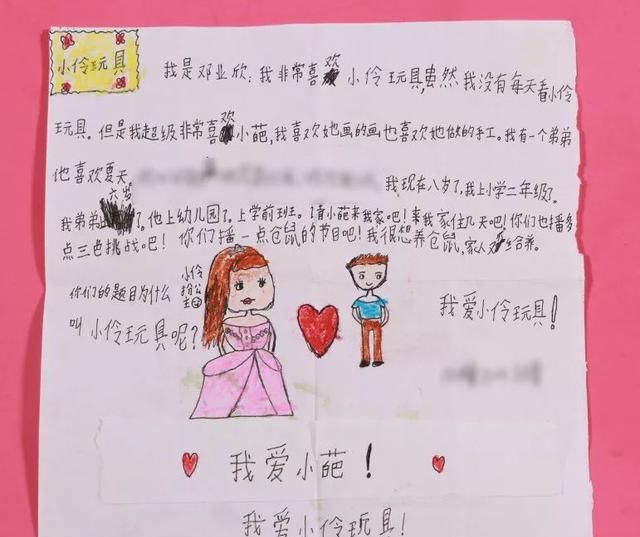 小伶玩具
我是邓业欣：我非常喜欢小伶玩具，虽然我没有每天看小伶
玩具。但是我超级非常喜欢小葩，我喜欢她画的画也喜欢她做的手工。我有一个弟弟
他喜欢夏天
我现在八岁了，我上小学二年级了。
我弟弟六岁了。他上幼儿园了。上学前班。请小葩来我家吧！来我家住几天吧！你们也播多
点三色挑战吧！你们播一点仓鼠的节目吧！我很想养仓鼠，家人不给养。
你们的题目为什么
叫小伶玩具呢？
小伶扮公主
我爱小伶玩具！
我爱小葩！
我爱小伶玩具！